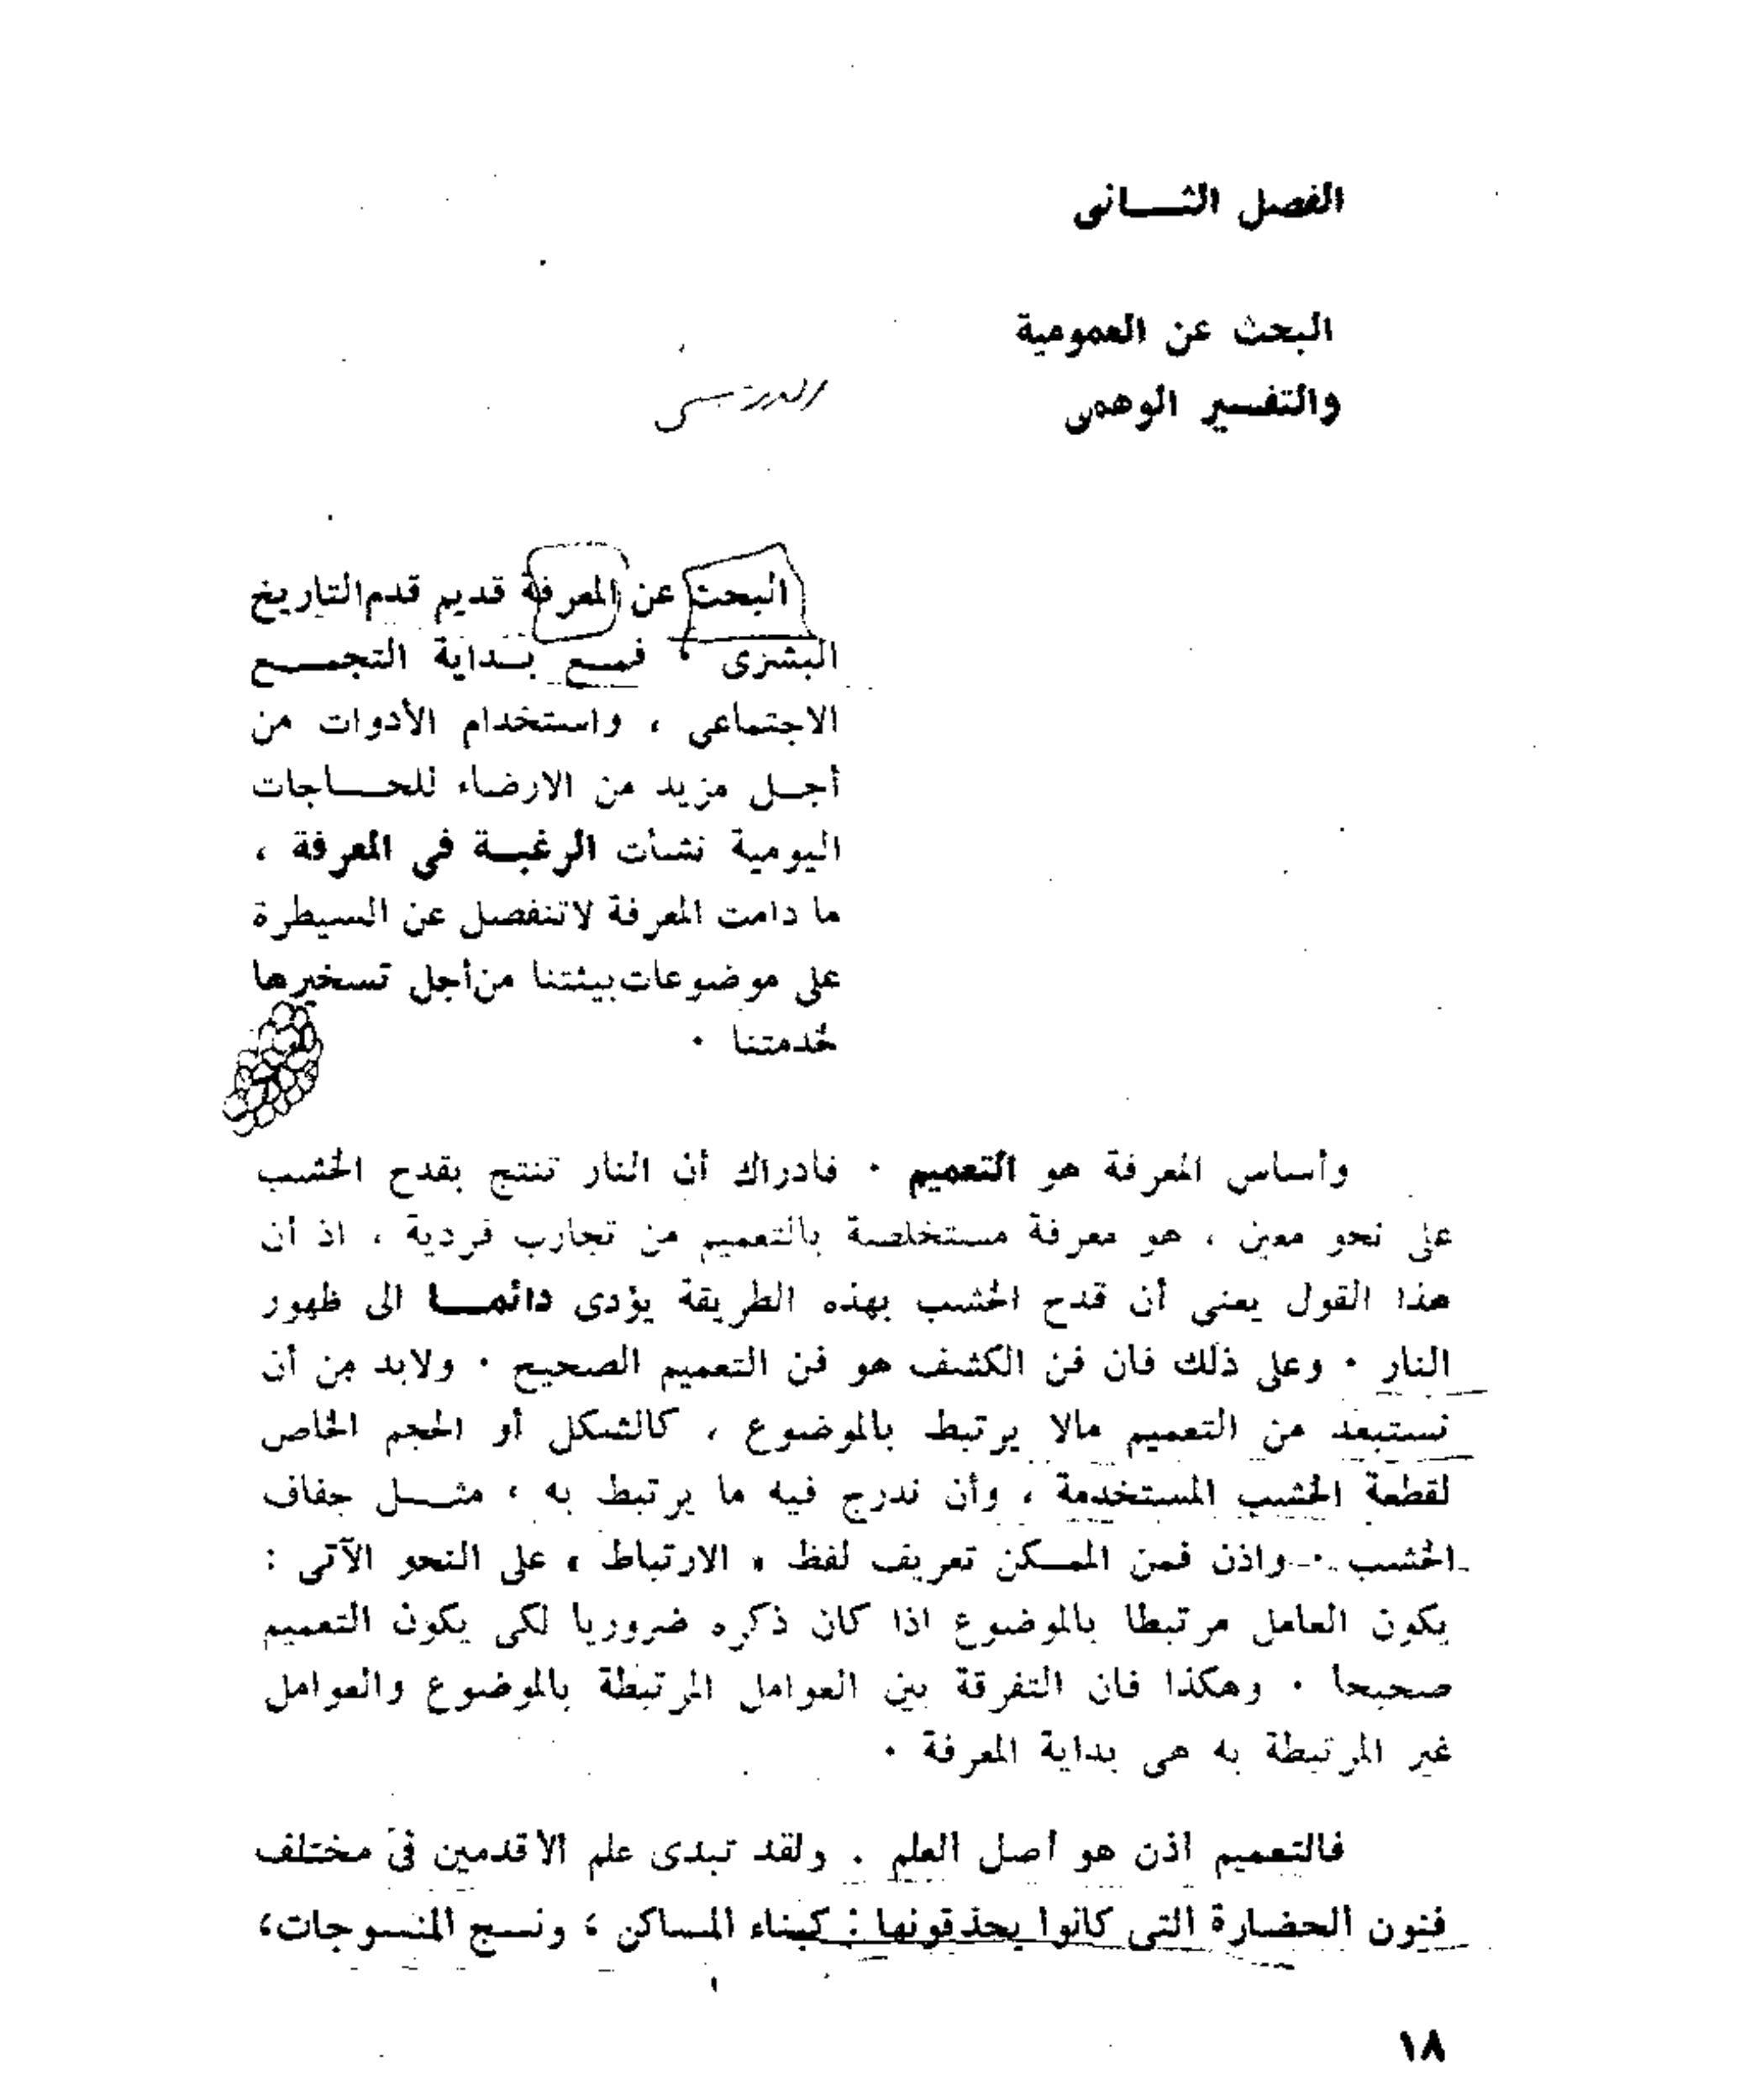 الفصل الثـــانى
البحث عن العمومية
والتفسير الوهمى
البحث عن المعرفة قديم قدم التاريخ
البشرى ، فمـع بـداية التجمـــع
الاجتماعى ، واستخدام الأدوات من
أجـل مزيد من الارضاء للحـــاجات
اليومية نشأت الرغبـة فى المعرفة ،
ما دامت المعرفة لاتنفصل عن السيطرة
على موضوعات بيئتنا من أجل تسخيرها
لخدمتنا ٠
وأساس المعرفة هو التعميم ٠ فادراك أن النار تنتج بقدح الخشب
على نحو معين ، هو معرفة مستخلصة بالتعميم من تجارب فردية ، اذ أن
هذا القول يعنى أن قدح الخشب بهذه الطريقة يؤدى دائمـــا الى ظهور
النار ٠ وعلى ذلك فان فن الكشف هو فن التعميم الصحيح ٠ ولابد من أن
نستبعد من التعميم مالا يرتبط بالموضوع ، كالشكل أو الحجم الخاص
لقطعة الخشب المستخدمة ، وأن ندرج فيه ما يرتبط به ، مثـــل جفاف
الخشب ٠ واذن فمن الممـكن تعريف لفظ « الارتباط » على النحو الآتى :
يكون العامل مرتبطا بالموضوع اذا كان ذكره ضروريا لكى يكون التعميم
صحيحا ٠ وهكذا فان التفرقة بين العوامل المرتبطة بالموضوع والعوامل
غير المرتبطة به هى بداية المعرفة ٠
فالتعميم اذن هو أصل العلم . ولقد تبدى علم الأقدمين فى مختلف
فنون الحضارة التى كانوا يحذقونها : كبناء المساكن ، ونسـج المنسوجات،
١٨